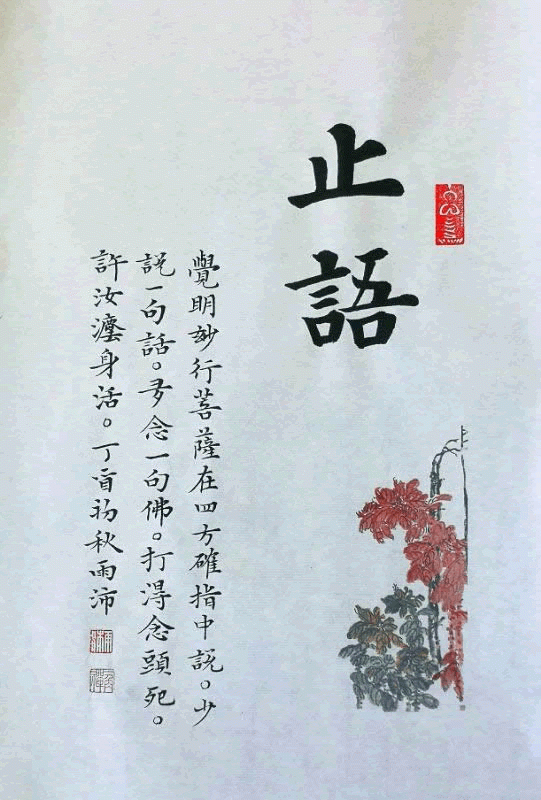 止語
覺明妙行菩薩在四方確指中説。少
説一句話。多念一句佛。打得念頭死。
許汝灋身活。丁酉初秋雨沛